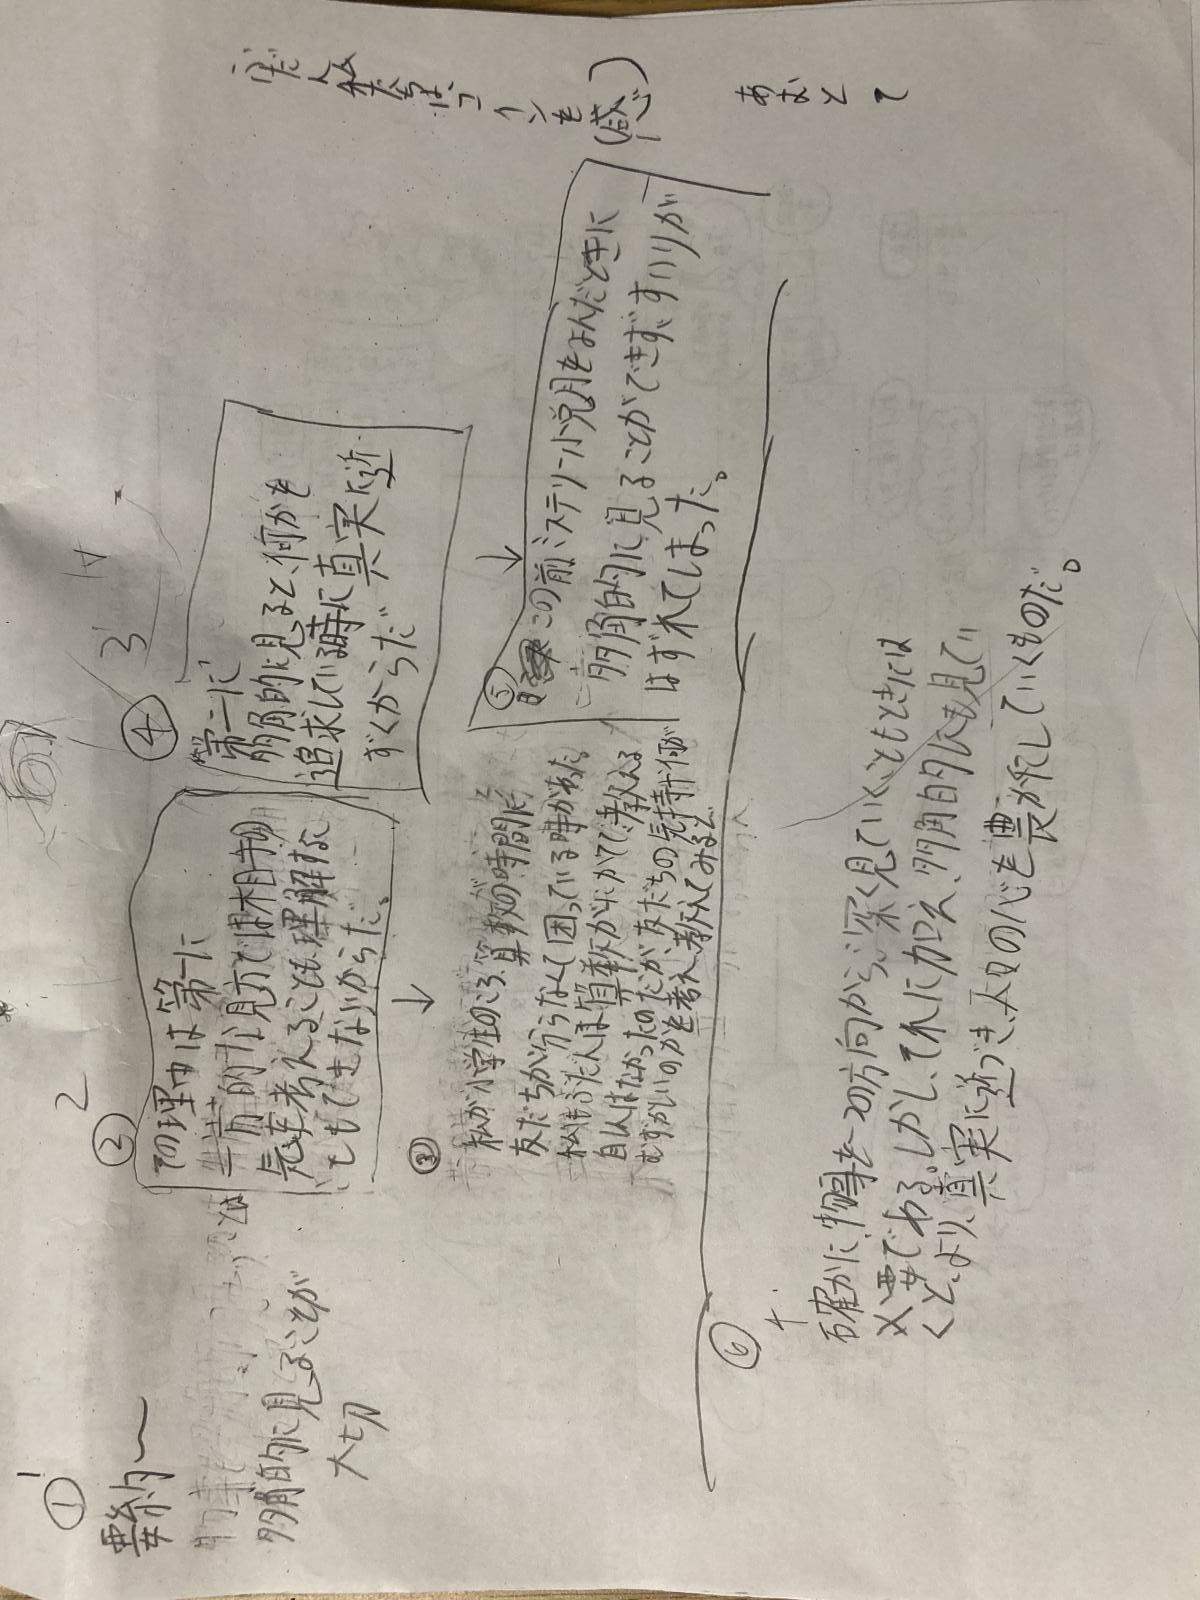 ① 1
要約〜
多角的に見ることが
大切
② 2
その理由は第一に
一方的な見方では相手の
気持考えることも理解する
こともできないからだ。
③
私が小学生のころ、算数の時間に
友だちが分らなくて困っている時があった。
私もふだんは算数がにがてで、教える
自信はなかったのだが、友だちの気持ナ何が
むずかしいのかを考え、教えてみると
④ 3
第二に
多角的に見ると、何かを
追求している時に真実に近
ずくからだ
⑤
この前ミステリー小説をよんだときに
多角的に見ることができず、すいりが
はずれてしまった。
⑥ 4
確かに、物事を一つの方向から、深く見ていくこともときには
必要である。しかし、それに加え、多角的にも見てい
くと、より、真実に近づき、人の心を豊かにしていくものだ。
あおとて